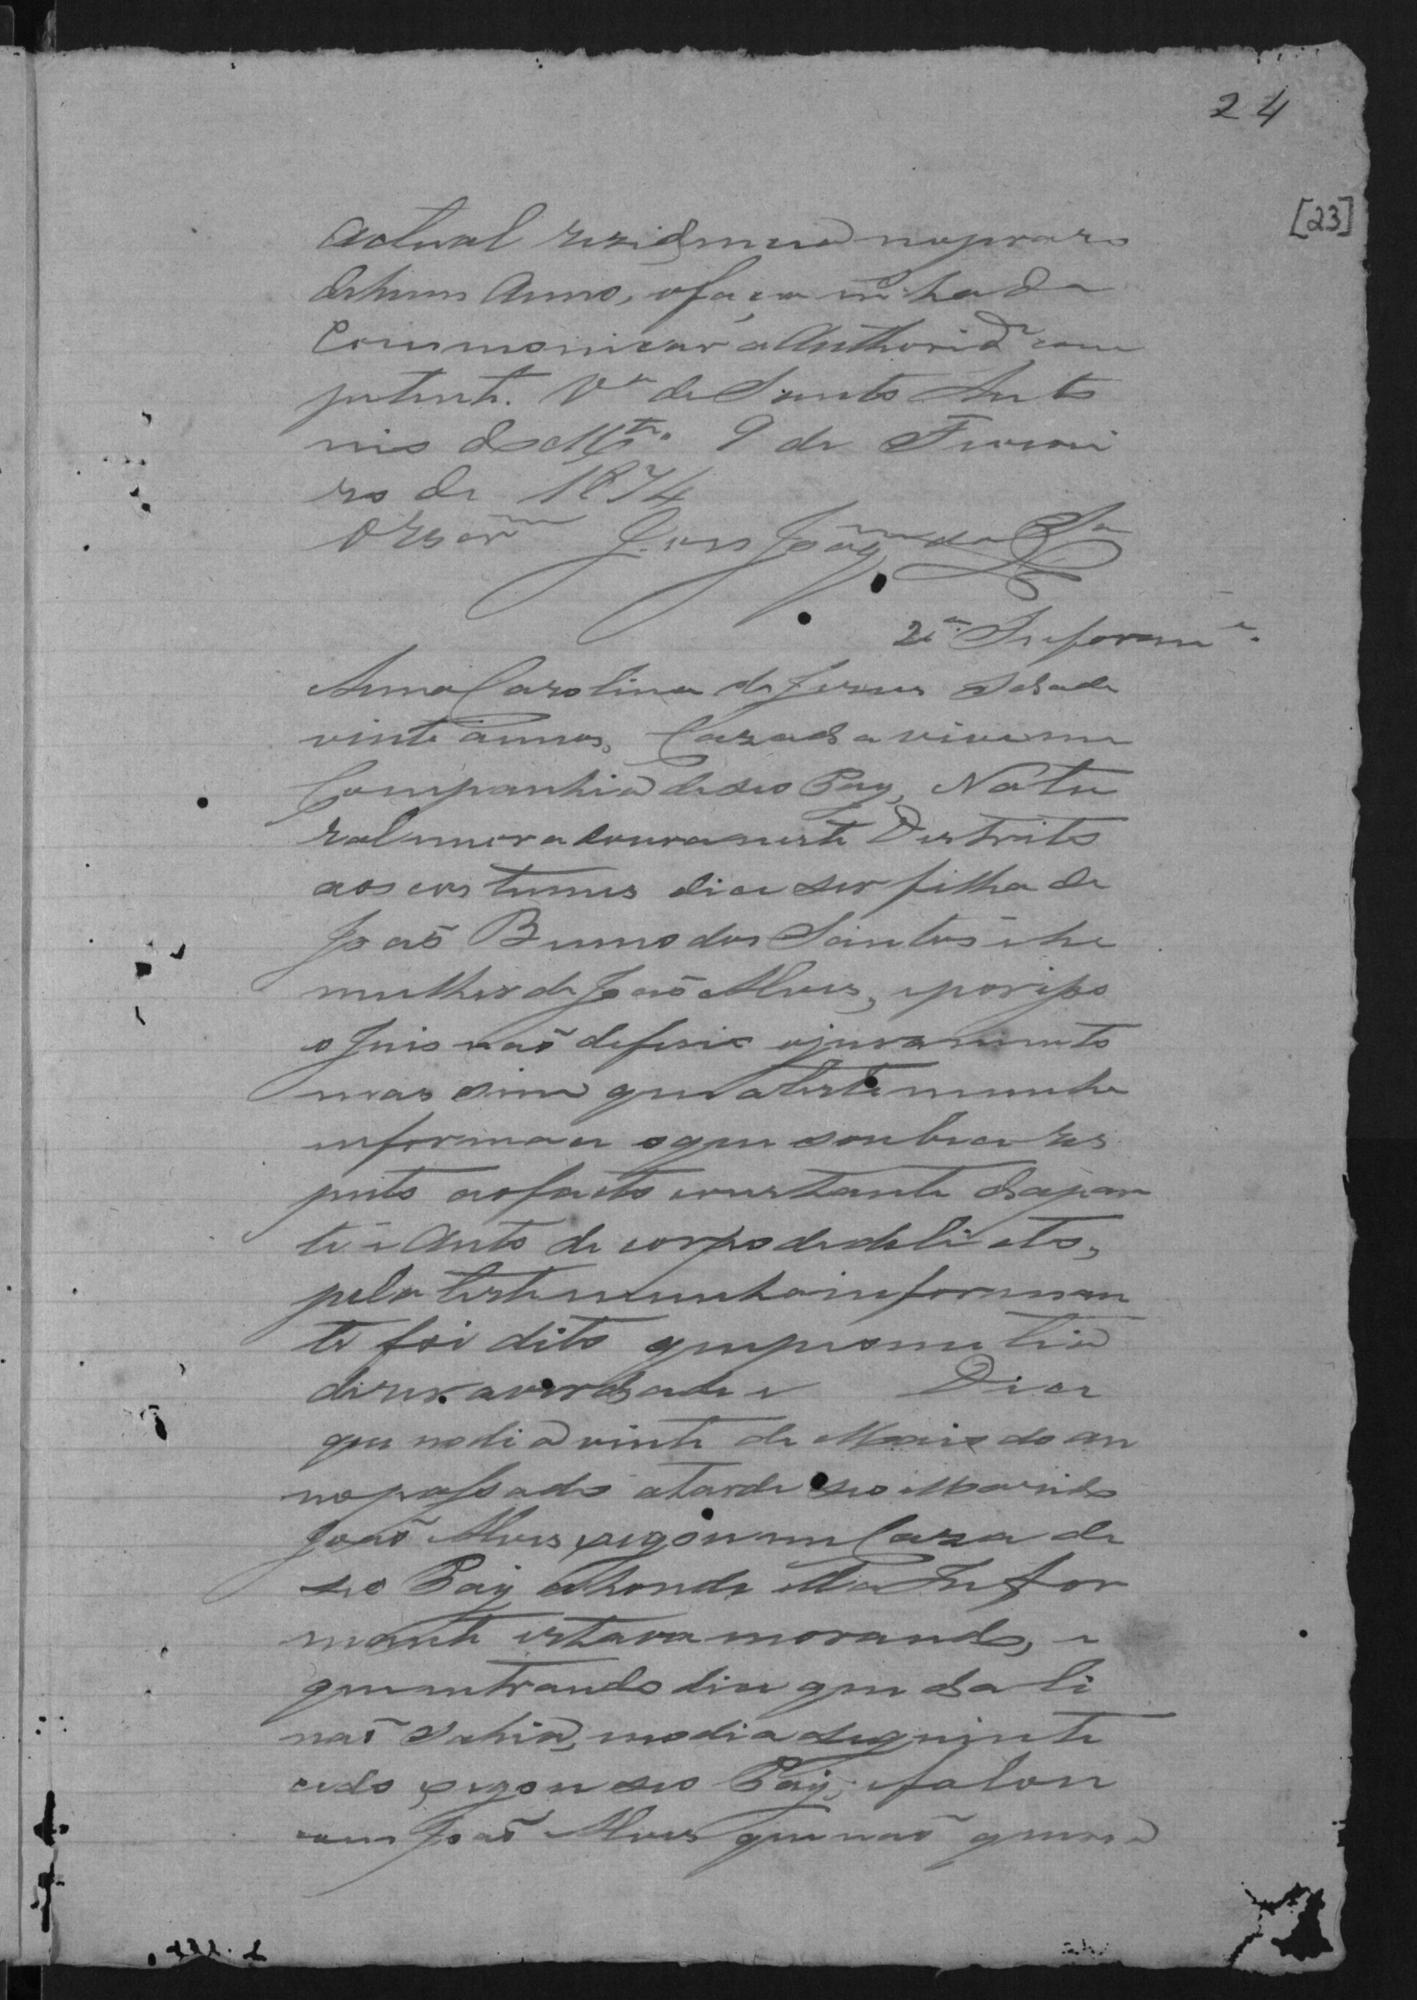 24
[23]
actual rezidencia no prazo
de hum anno, o faça
Communicar a Authorid.e com
petente. V.a de Santo Anto
nio do M.to 9 de Feverei
ro de 1874
O Escr.am
2.a Inform.e
Anna Carolina de Jesus idade
vinte annos, Cazada vive na
Companhia de seo Pay, Natu
ral moradoura neste Destrito
aos costumes dice ser filha de
João Bueno dos Santos e he
mulher de João Alves, e por isso
o Juis não deferio o juramento
mas sim que a testemunha
informace o que soubece res
peito ao facto constante da par
te e Auto de corpo de delicto,
pela testemunha informan
te foi dito que prometia
dizer a verdade e Dice
que no dia vinte de Maio do an
no passado a tarde seo Marido
João Alves xegou em Caza de
seo Pay ahonde ella Infor
mante estava morando, e
que entrando dice que dali
não sahia, no dia seguinte
cedo xegou seo Pay, e falou
com João Alves que não queria